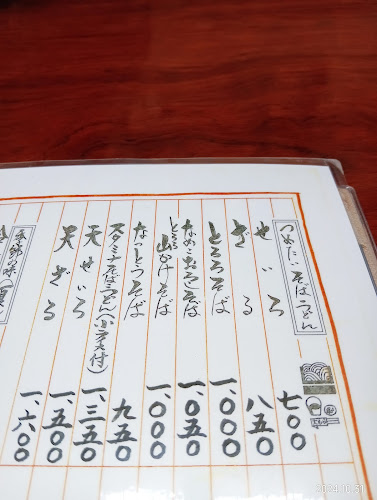 つめたいそば・うどん
せいろ 七〇〇
ざる 八五〇
とろろそば 一、〇〇〇
なめこおろしそば 一、〇五〇
とろろ山かけそば 一、〇〇〇
なっとうそば 九五〇
スタミナそば・うどん(小天付) 一、三五〇
天せいろ 一、五〇〇
天ざる 一、六〇〇
季節の味
2024.10.31